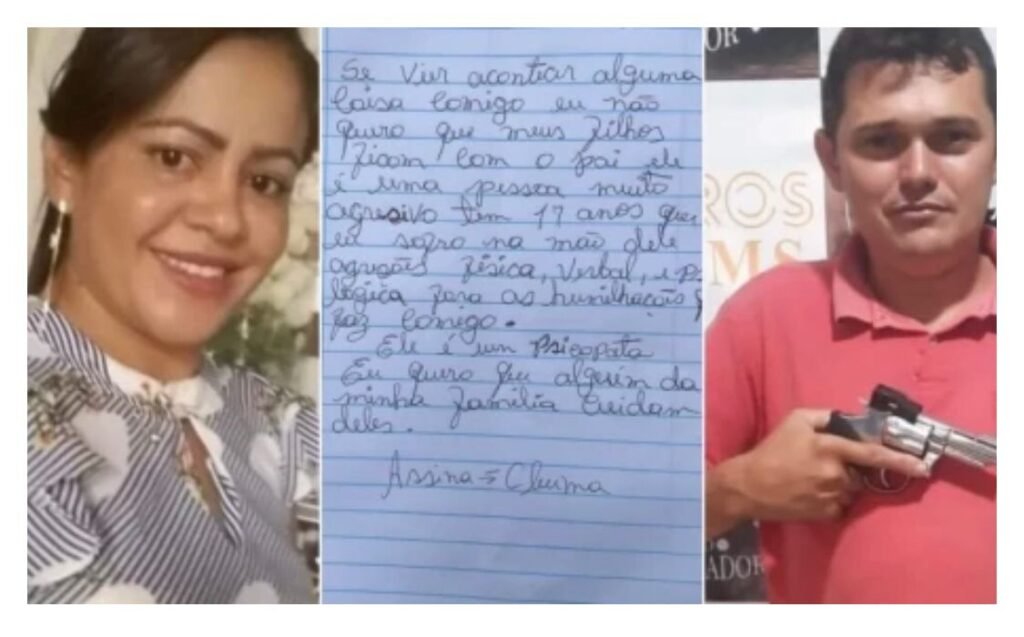 Se vier acontiar alguma
Coisa Comigo eu não
quiro que meus filhos
ficam Com o pai ele
é uma pessoa muito
agresivo tem 17 anos que
eu sofro na mão dele
agresões física, verbal, e ps
logica fora as humilhação q
faz Comigo.
Ele é um Psicopata
Eu quero que alguém da
minha família Cuidam
deles.
Assina
OR
ROS
MS
ADOR